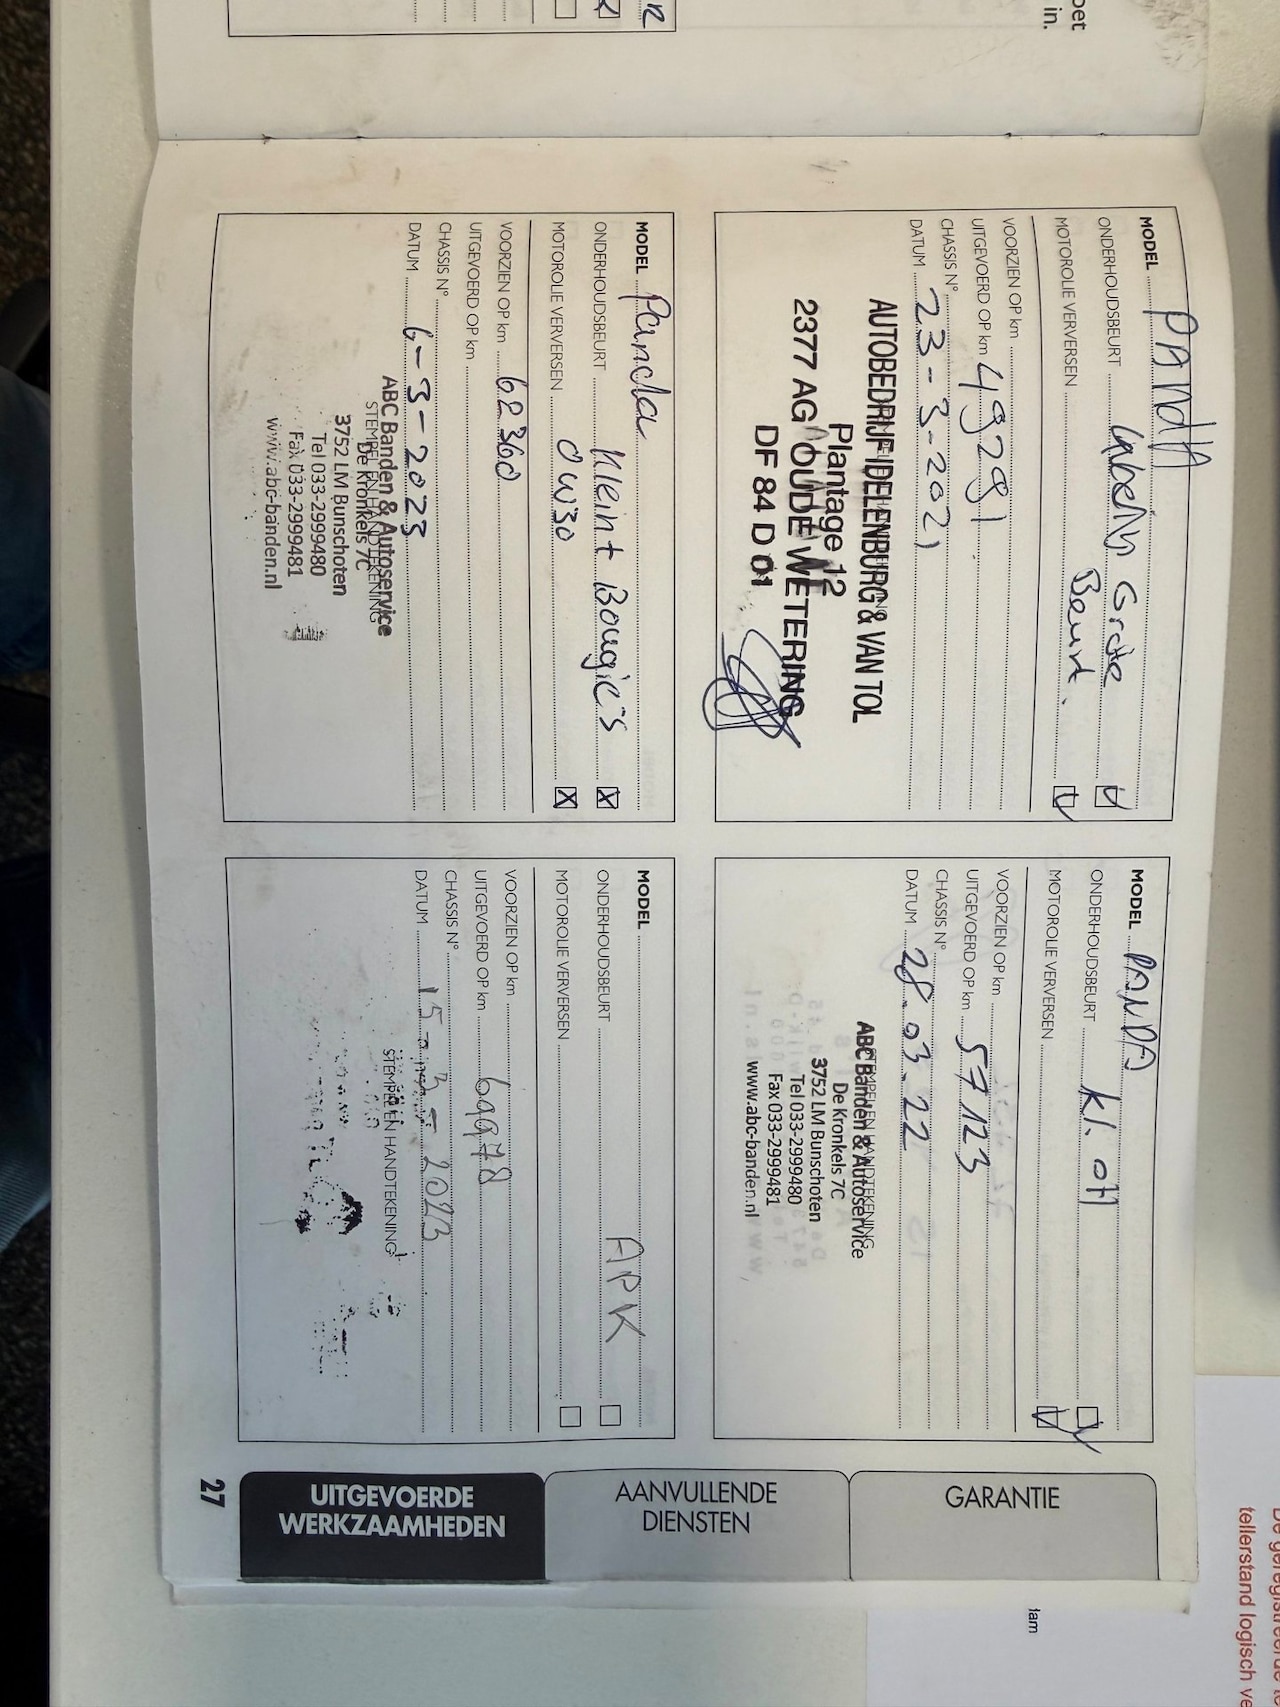 oet
in.
MODEL PANdA
ONDERHOUDSBEURT Grote
MOTOROLIE VERVERSEN Beurt.
VOORZIEN OP km
UITGEVOERD OP km 49291
CHASSIS N°
DATUM 23-3-2021
AUTOBEDRIJF IDELENBURG & VAN TOL
Plantage 12
2377 AG OUDE WETERING
DF 84 D 01
MODEL PANDA
ONDERHOUDSBEURT kl. oh
MOTOROLIE VERVERSEN
VOORZIEN OP km
UITGEVOERD OP km 57123
CHASSIS N°
DATUM 28.03.22
STEMPEL EN HANDTEKENING
ABC Banden & Autoservice
De Kronkels 7C
3752 LM Bunschoten
Tel 033-2999480
Fax 033-2999481
www.abc-banden.nl
MODEL Panda
ONDERHOUDSBEURT Klein + Bougie's
MOTOROLIE VERVERSEN 0W30
VOORZIEN OP km 62360
UITGEVOERD OP km
CHASSIS N°
DATUM 6-3-2023
ABC Banden & Autoservice
STEMPEL EN HANDTEKENING
De Kronkels 7C
3752 LM Bunschoten
Tel 033-2999480
Fax 033-2999481
www.abc-banden.nl
MODEL
ONDERHOUDSBEURT APK
MOTOROLIE VERVERSEN
VOORZIEN OP km
UITGEVOERD OP km 69978
CHASSIS N°
DATUM 15-3-2023
STEMPEL EN HANDTEKENING
GARANTIE
AANVULLENDE
DIENSTEN
UITGEVOERDE
WERKZAAMHEDEN
27
lam
De geregistreerde
tellerstand logisch ve